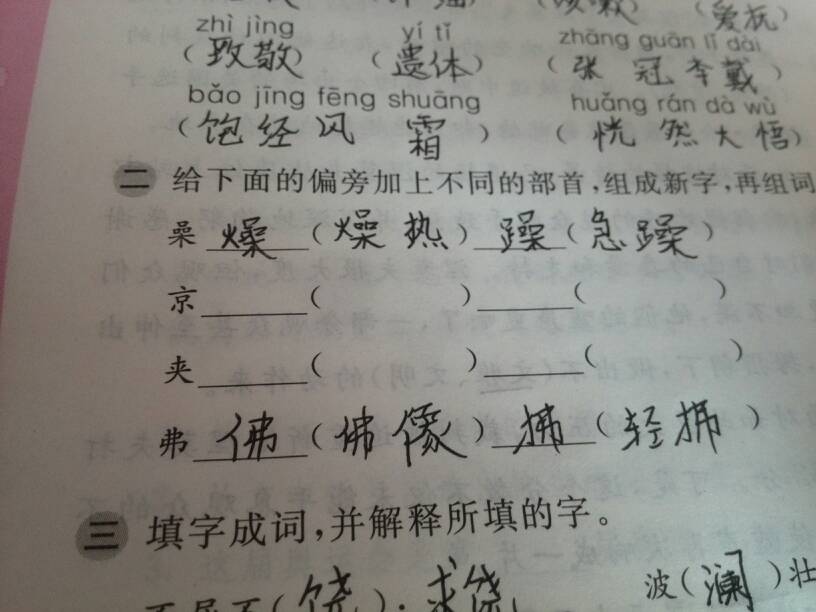 (爱抚)
zhì jìng yí tǐ zhāng guān lǐ dài
(致敬) (遗体) (张冠李戴)
bǎo jīng fēng shuāng huǎng rán dà wù
(饱经风霜) (恍然大悟)
二 给下面的偏旁加上不同的部首,组成新字,再组词
喿 燥 (燥热) 躁 (急躁)
京 ( ) ( )
夹 ( ) ( )
弗 佛 (佛像) 拂 (轻拂)
三 填字成词,并解释所填的字。
不屈不(饶)·求饶 波(澜)壮